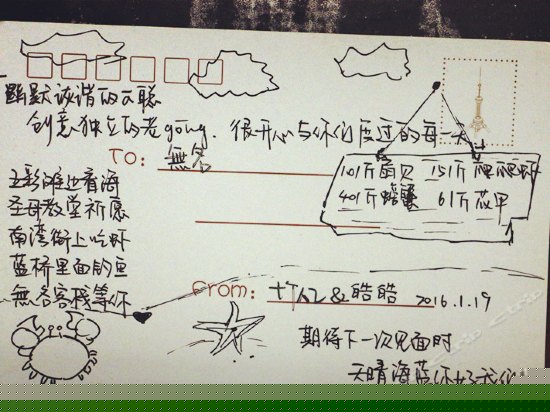 幽默诙谐的大聪
创意独立的老gong.很开心与你们度过的每一天
TO: 無名
101斤扇贝 151斤爬爬虾
401斤螃蟹 61斤花甲
五彩滩边看海
圣母教堂祈愿
南湾街上吃虾
蓝桥里面钓鱼
無名客栈等你
From: &皓皓 2016.1.19
期待下一次见面时
天晴海蓝你好我们